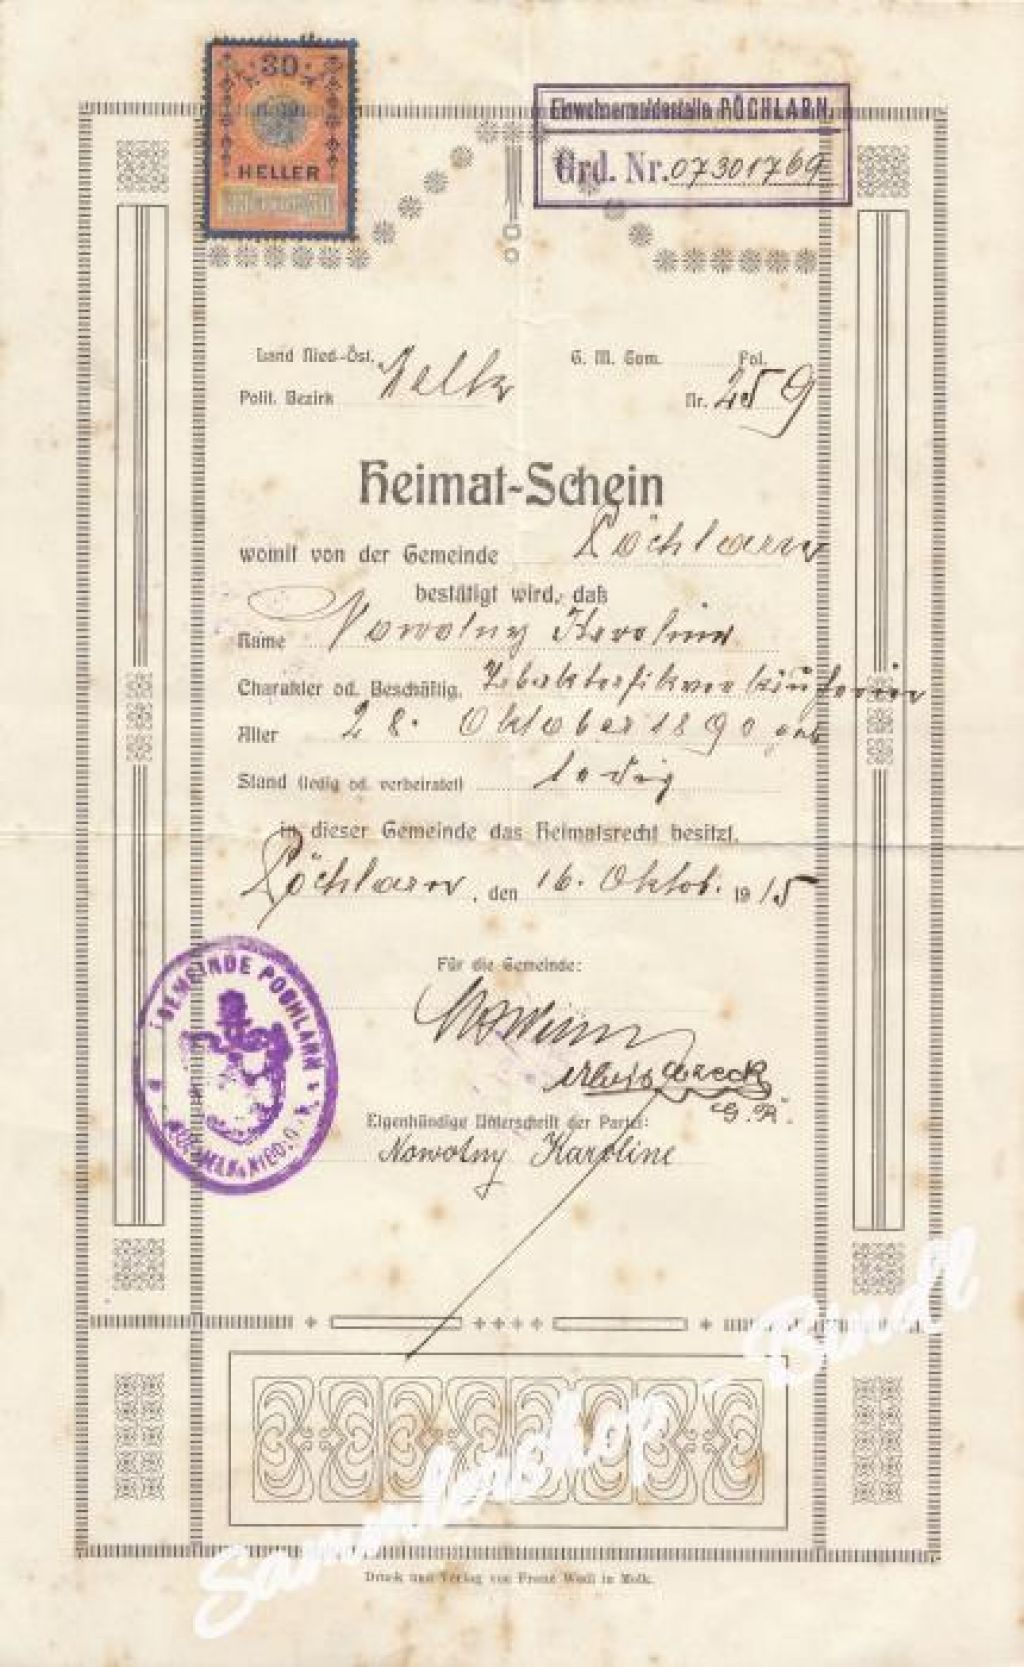 30
HELLER
Einwohnermeldestelle PÖCHLARN
Grd. Nr. 07301769
Land Nied.-Öst.
G. M. Gom. Fol.
Polit. Bezirk Melk
Nr. 259
Heimat-Schein
womit von der Gemeinde Pöchlarn
bestätigt wird, daß
Name Nowotny Karoline
Charakter od. Beschäftig.
Alter 28. Oktober 1890 geb
Stand (ledig od. verheiratet) ledig
in dieser Gemeinde das Heimatsrecht besitzt.
Pöchlarn, den 16. Oktob. 1915
Für die Gemeinde:
G. R.
Eigenhändige Unterschrift der Partei:
Nowotny Karoline
GEMEINDE PÖCHLARN
Sammlershop - Bindl
Druck und Verlag von Franz Wedl in Melk.